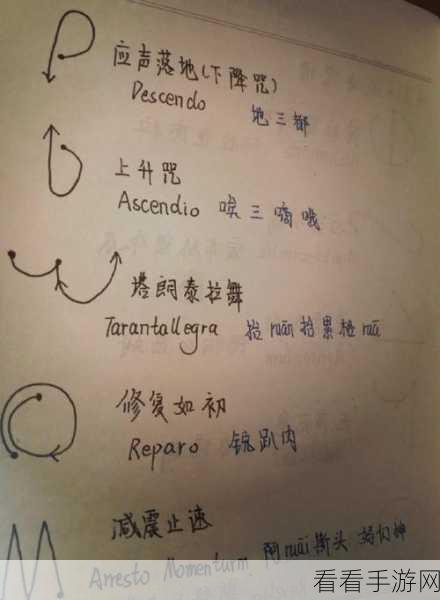 应声落地(下降咒)
Descendo 地三都
上升咒
Ascendio 唉三嘀哦
塔朗泰拉舞
Tarantallegra 抬ruān抬累格ruā
修复如初
Reparo 锐趴内
减震止速
Arresto Momentum 阿ruāi斯头
看看手游网